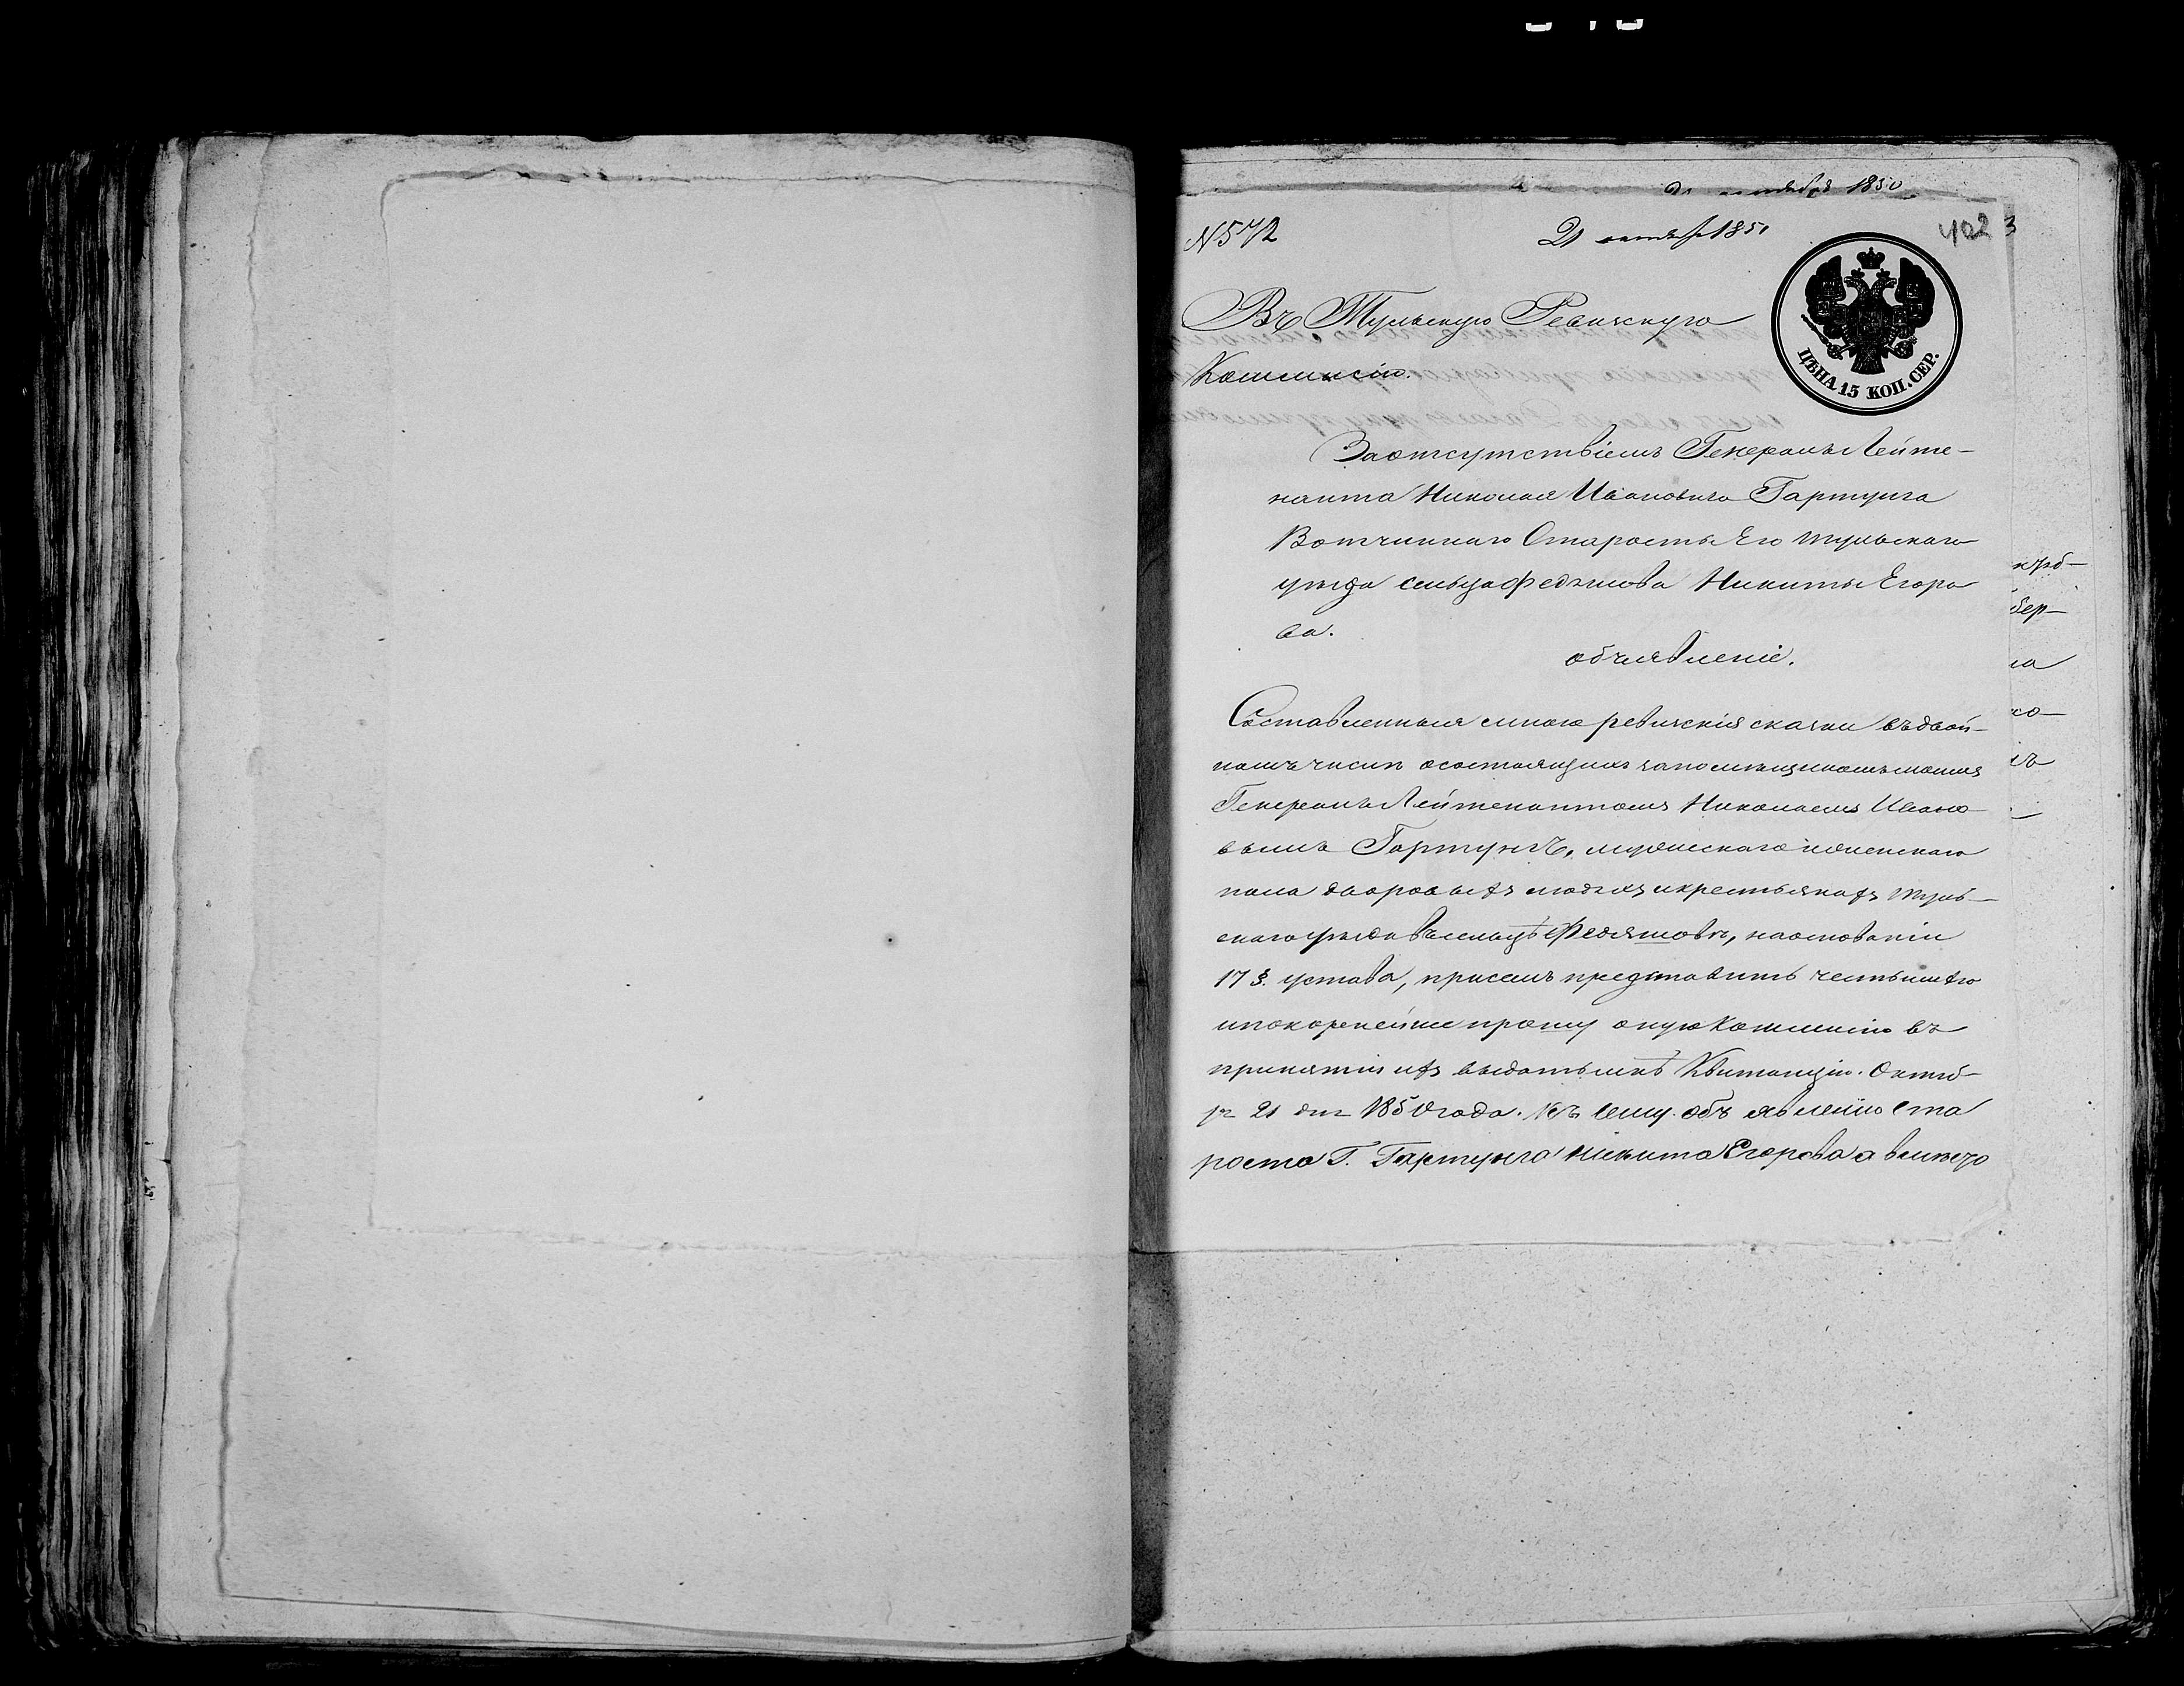 октября 1850
N 572
21 октября 1850
402
3
ЦѢНА 15 КОП. СЕР.
Въ Тульскую Ревизскую
Коммисію.
За отсутствіемъ Генералъ Лейте-
нанта Николая Ивановича Гартунга
Вотчиннаго Старосты Его Тульскаго
уѣзда сельца Федяшова Никиты Егоро
ва.
объявленіе.
Составленныя мною ревизскія сказки въ двой-
номъ числѣ о состоящихъ за помѣщикомъ моимъ
Генералъ Лейтенантомъ Николаемъ Ивано
вымъ Гартунгъ, мужескаго и женскаго
пола дворовыхъ людяхъ и крестьянахъ Туль-
скаго уѣзда въ сельцѣ Федяшовѣ, на основаніи
17 §. устава, при семъ представить честь имѣю
и покорнейше прошу оную Коммисію въ
принятіи ихъ выдать мнѣ Квитанцію. Октяб-
ря 21 дня 1850 года. Къ сему объявленію Ста
роста Г. Гартунга Никита Егорова а вместо
бер-
на
ко-